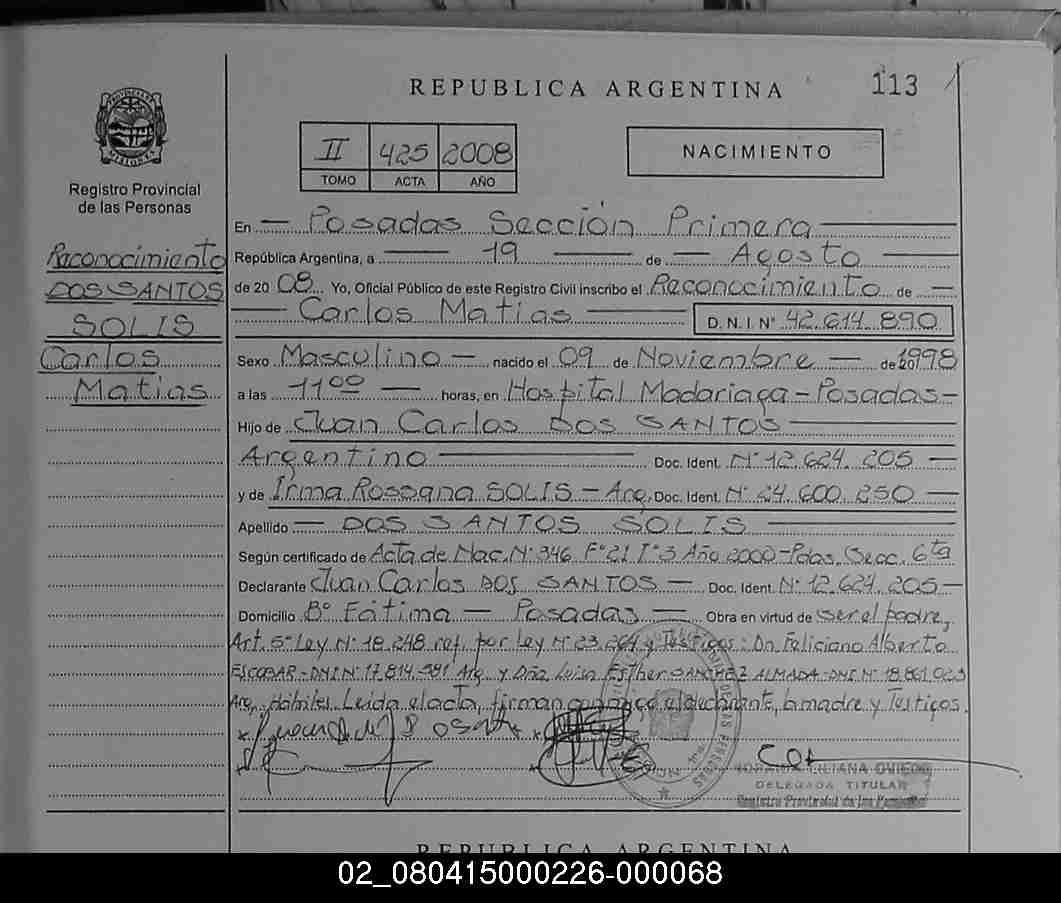 REPUBLICA ARGENTINA
113
II 425 2008
TOMO ACTA AÑO
NACIMIENTO
PROVINCIA DE MISIONES
Registro Provincial
de las Personas
Reconocimiento
DOS SANTOS
SOLIS
Carlos
Matias
En Posadas Sección Primera
República Argentina, a 19 de Agosto
de 2008 Yo, Oficial Público de este Registro Civil inscribo el Reconocimiento de
Carlos Matias D.N.I. Nº 42.614.890
Sexo Masculino nacido el 09 de Noviembre de 1998
a las 11 00 horas, en Hospital Madariaga - Posadas -
Hijo de Juan Carlos DOS SANTOS
Argentino Doc. Ident. Nº 12.624.205
y de Irma Rossana SOLIS - Arg. Doc. Ident. Nº 24.600.250
Apellido DOS SANTOS SOLIS
Según certificado de Acta de Nac. Nº 346 Fº 21 Tº 3 Año 2000 - Pdas. Secc. 6ta
Declarante Juan Carlos DOS SANTOS - Doc. Ident. Nº 12.624.205 -
Domicilio Bº Fátima - Posadas - Obra en virtud de ser el padre,
Art. 5º Ley Nº 18.248 ref. por Ley Nº 23.264 y Testigos: Dn Feliciano Alberto
ESCOBAR - DNI Nº 17.814.581 Arg. y Dña Luisa Esther SANCHEZ ALMADA - DNI Nº 18.861.023
Arg. Hábiles. Leída el acta, firman conmigo el declarante, la madre y Testigos.
LILIANA OVIEDO
DELEGADA TITULAR
Registro Provincial de las Personas
REPUBLICA ARGENTINA
02_080415000226-000068